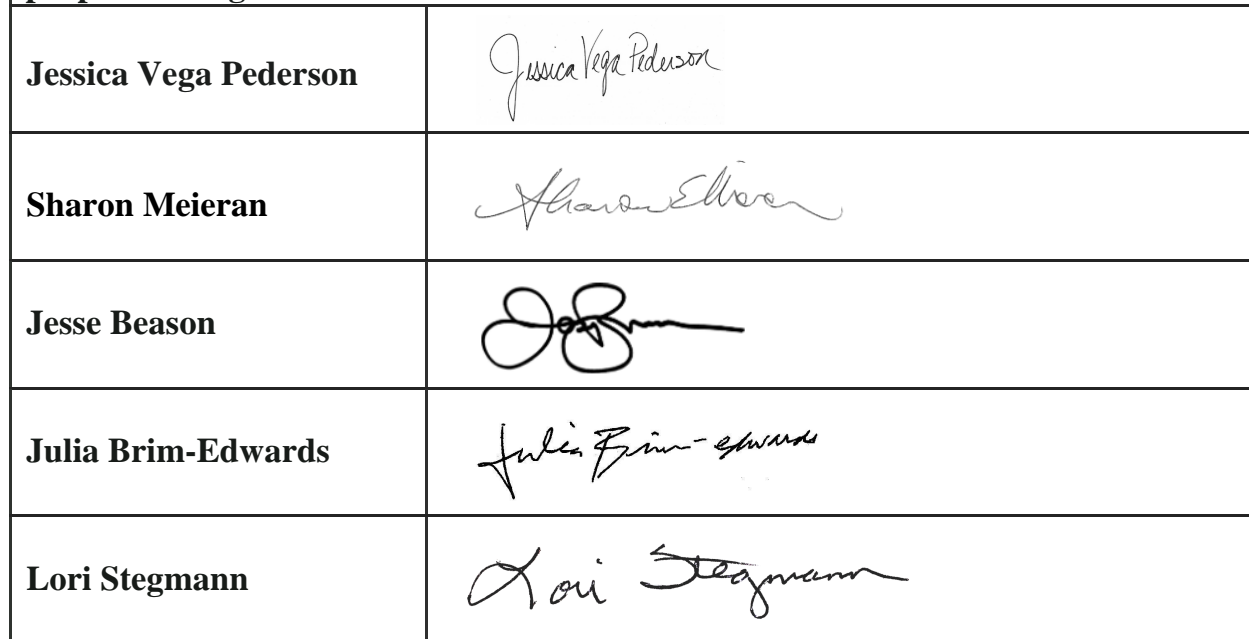 Jessica Vega Pederson Jessica Vega Pederson
Sharon Meieran Sharon E Meieran
Jesse Beason
Julia Brim-Edwards Julia Brim-edwards
Lori Stegmann Lori Stegmann